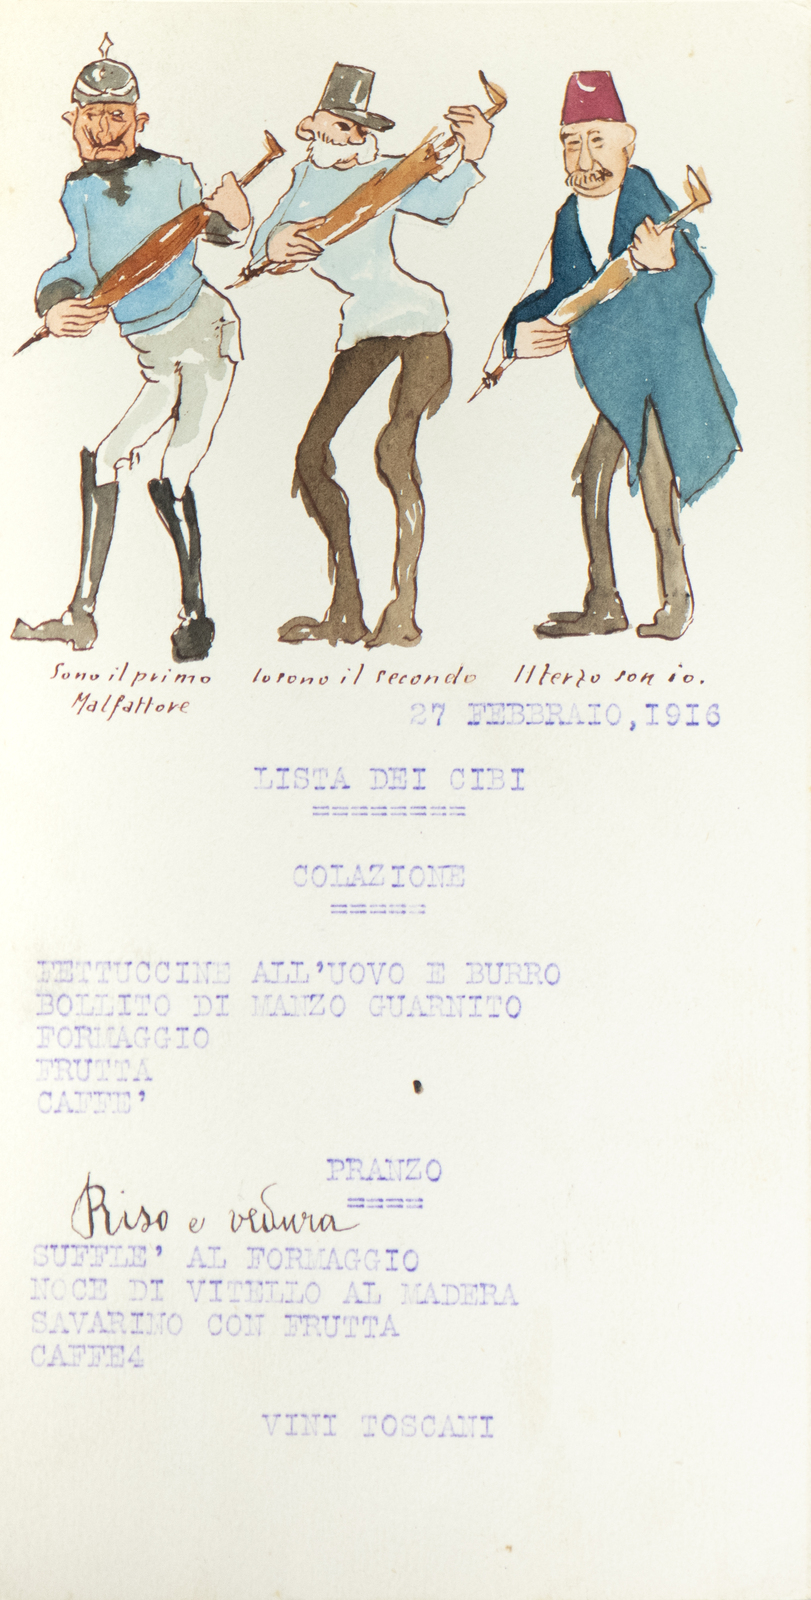 Sono il primo
Malfattore
Io sono il secondo
Il terzo son io.
27 FEBBRAIO,1916
LISTA DEI CIBI
========
COLAZIONE
=====
FETTUCCINE ALL'UOVO E BURRO
BOLLITO DI MANZO GUARNITO
FORMAGGIO
FRUTTA
CAFFE'
PRANZO
====
Riso e vedura
SUFFLE' AL FORMAGGIO
NOCE DI VITELLO AL MADERA
SAVARINO CON FRUTTA
CAFFE4
VINI TOSCANI